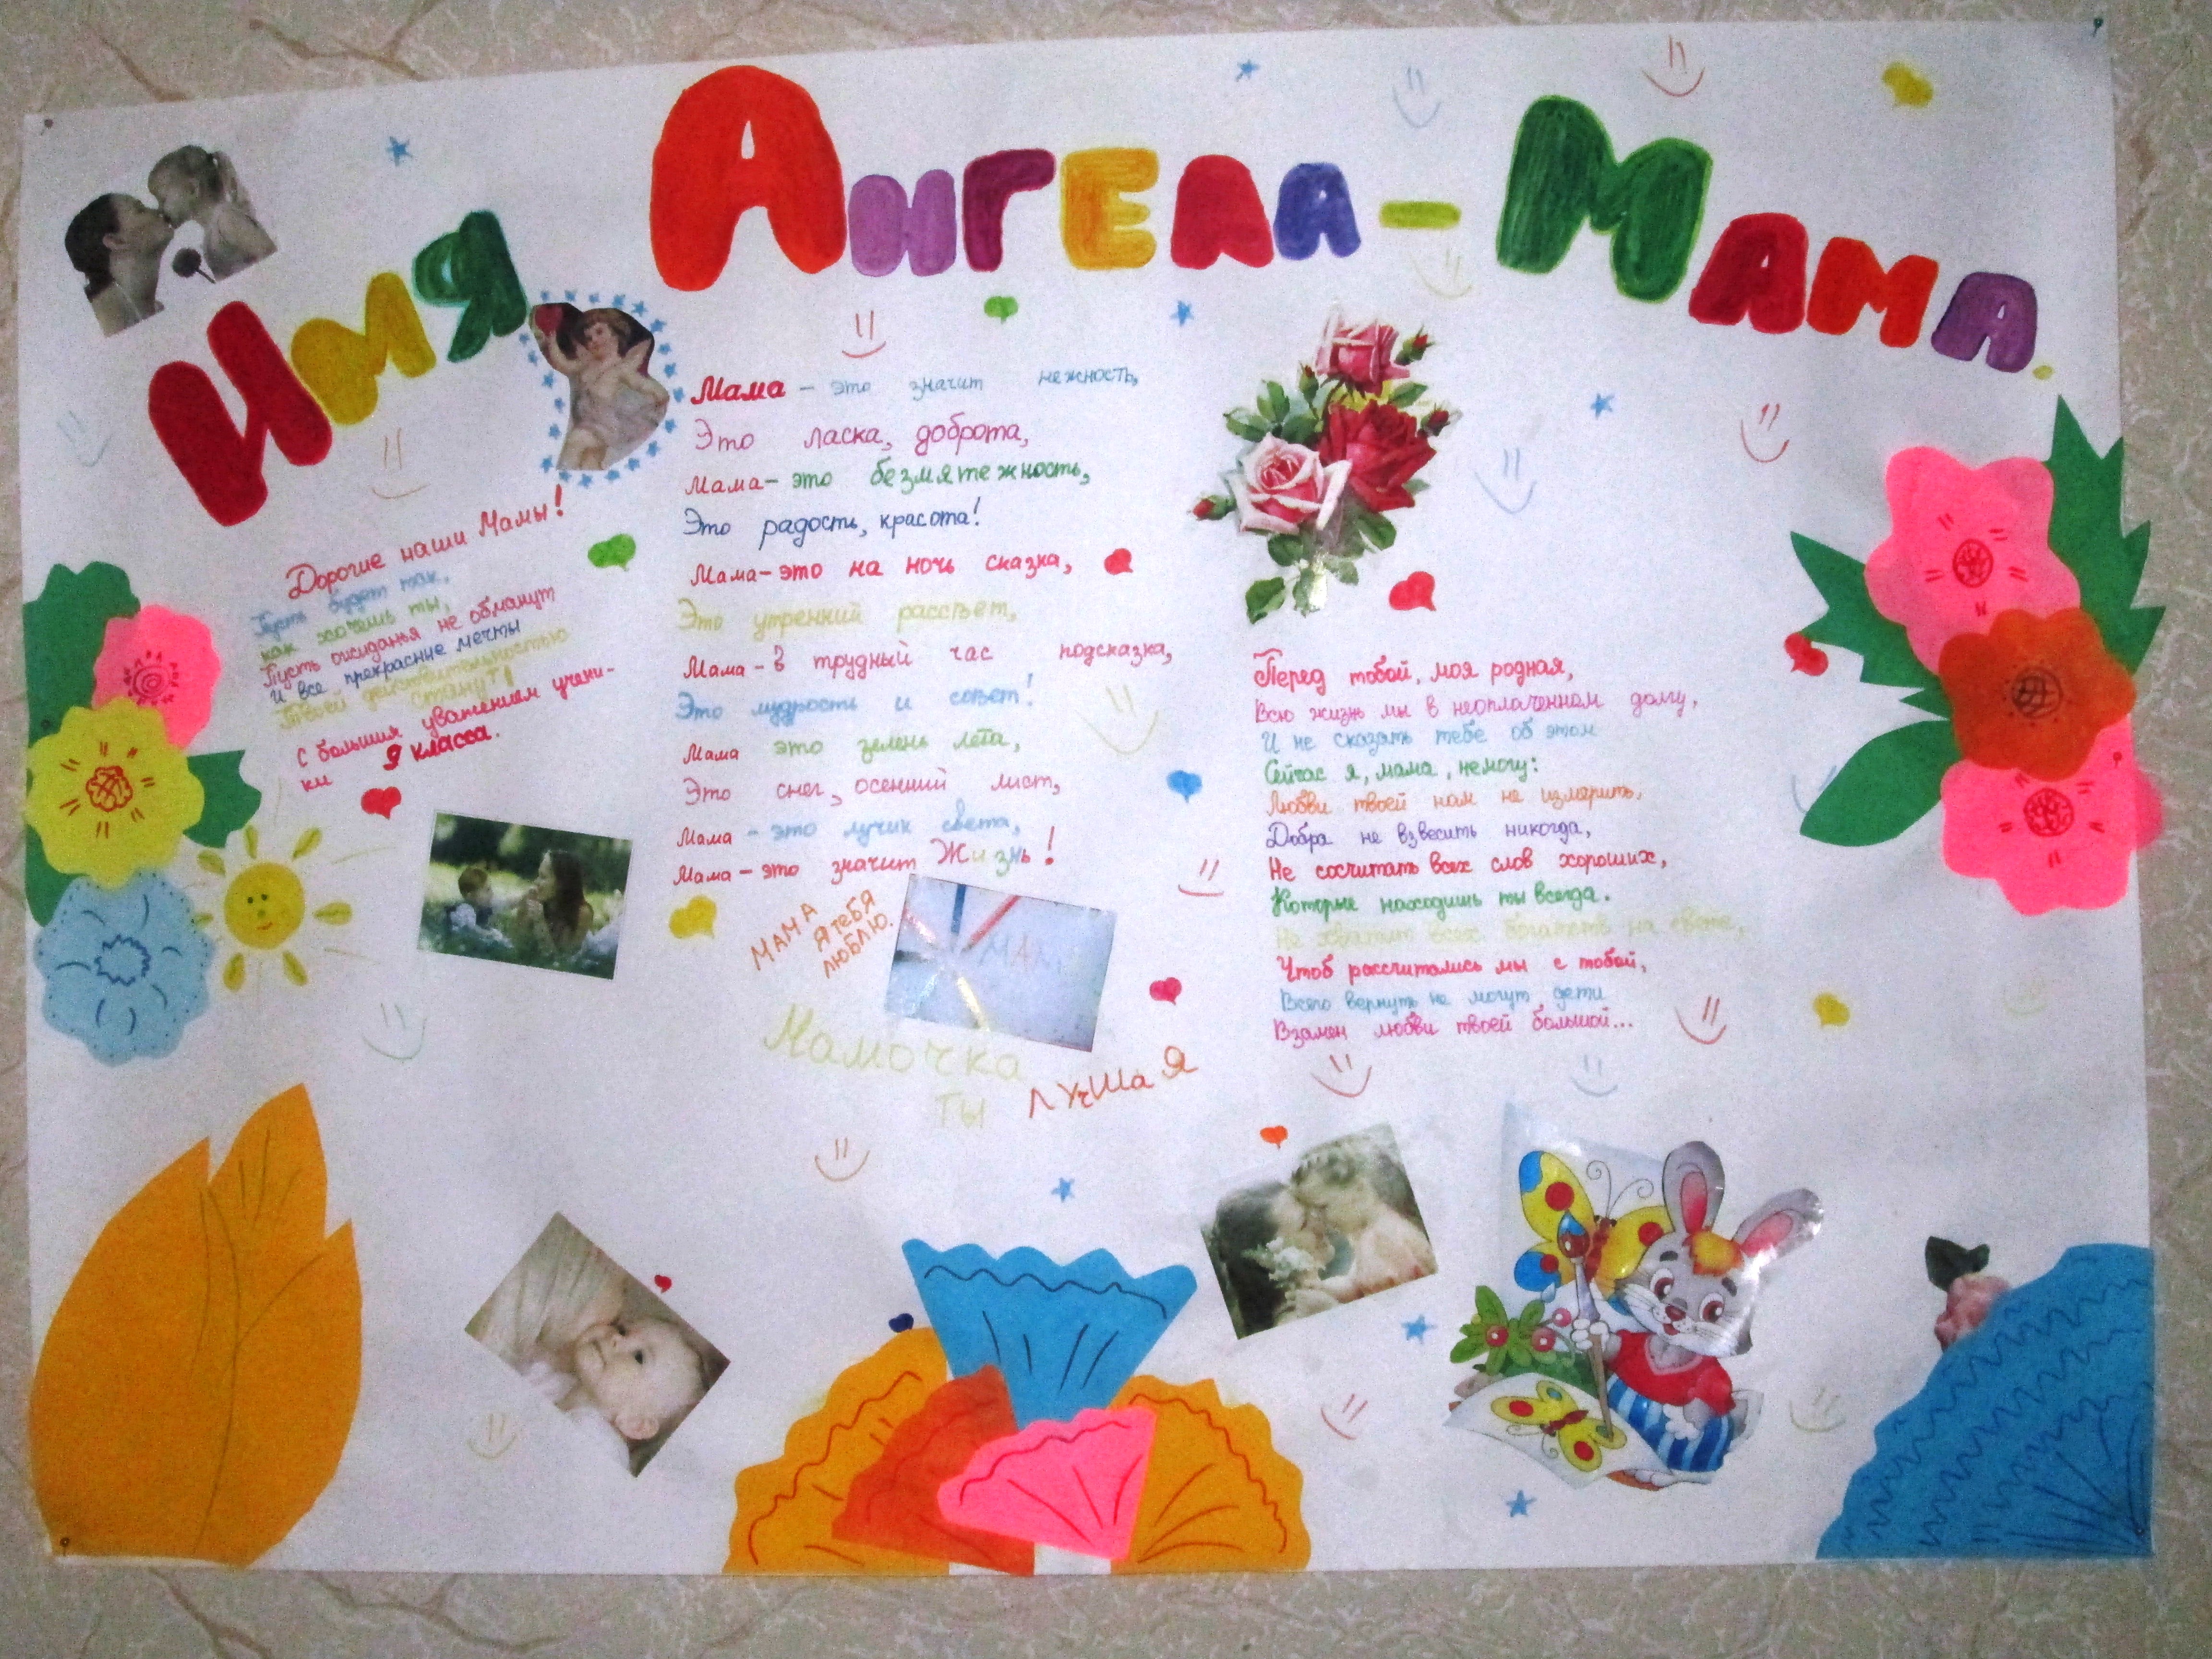 Имя Ангела - Мама.
Дорогие наши Мамы!
Пусть будет так,
как хочешь ты,
Пусть ожиданья не обманут
И все прекрасные мечты
Твоей действительностью
станут!
С большим уважением учени-
ки 9 класса.
Мама - это значит нежность,
Это ласка, доброта,
Мама - это безмятежность,
Это радость, красота!
Мама - это на ночь сказка,
Это утренний рассвет,
Мама - в трудный час подсказка,
Это мудрость и совет!
Мама это зелень лета,
Это снег, осенний лист,
Мама - это лучик света,
Мама - это значит Жизнь!
МАМА
Я тебя
люблю.
МАМА
Мамочка
ты лучшая
Перед тобой, моя родная,
Всю жизнь мы в неоплаченном долгу,
И не сказать тебе об этом
Сейчас я, мама, немогу:
Любви твоей нам не измерить,
Добра не взвесить никогда,
Не сосчитать всех слов хороших,
Которые находишь ты всегда.
Не хватит всех богатств на свете,
Чтоб рассчитались мы с тобой,
Всего вернуть не могут дети
Взамен любви твоей большой...